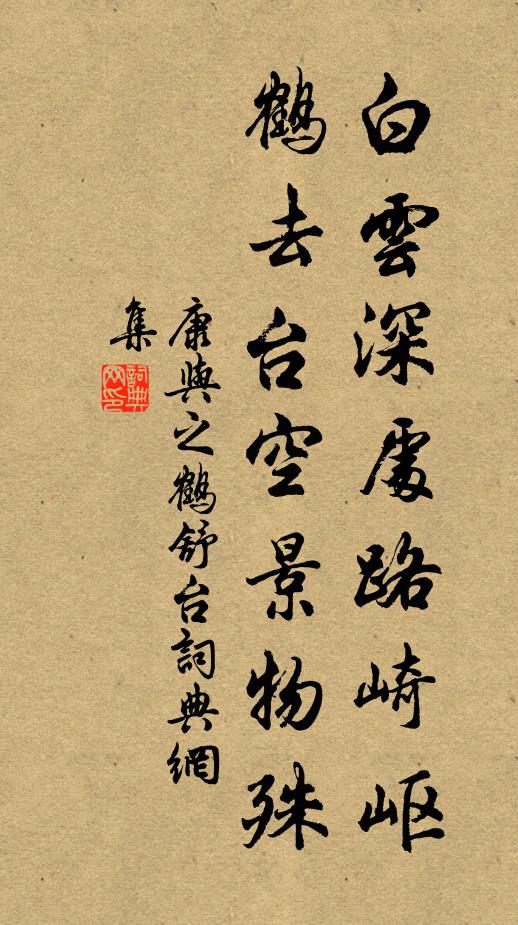 白雲深處路崎岖
鶴去台空景物殊
康與之鶴舒台詞典網
集
詞典网印